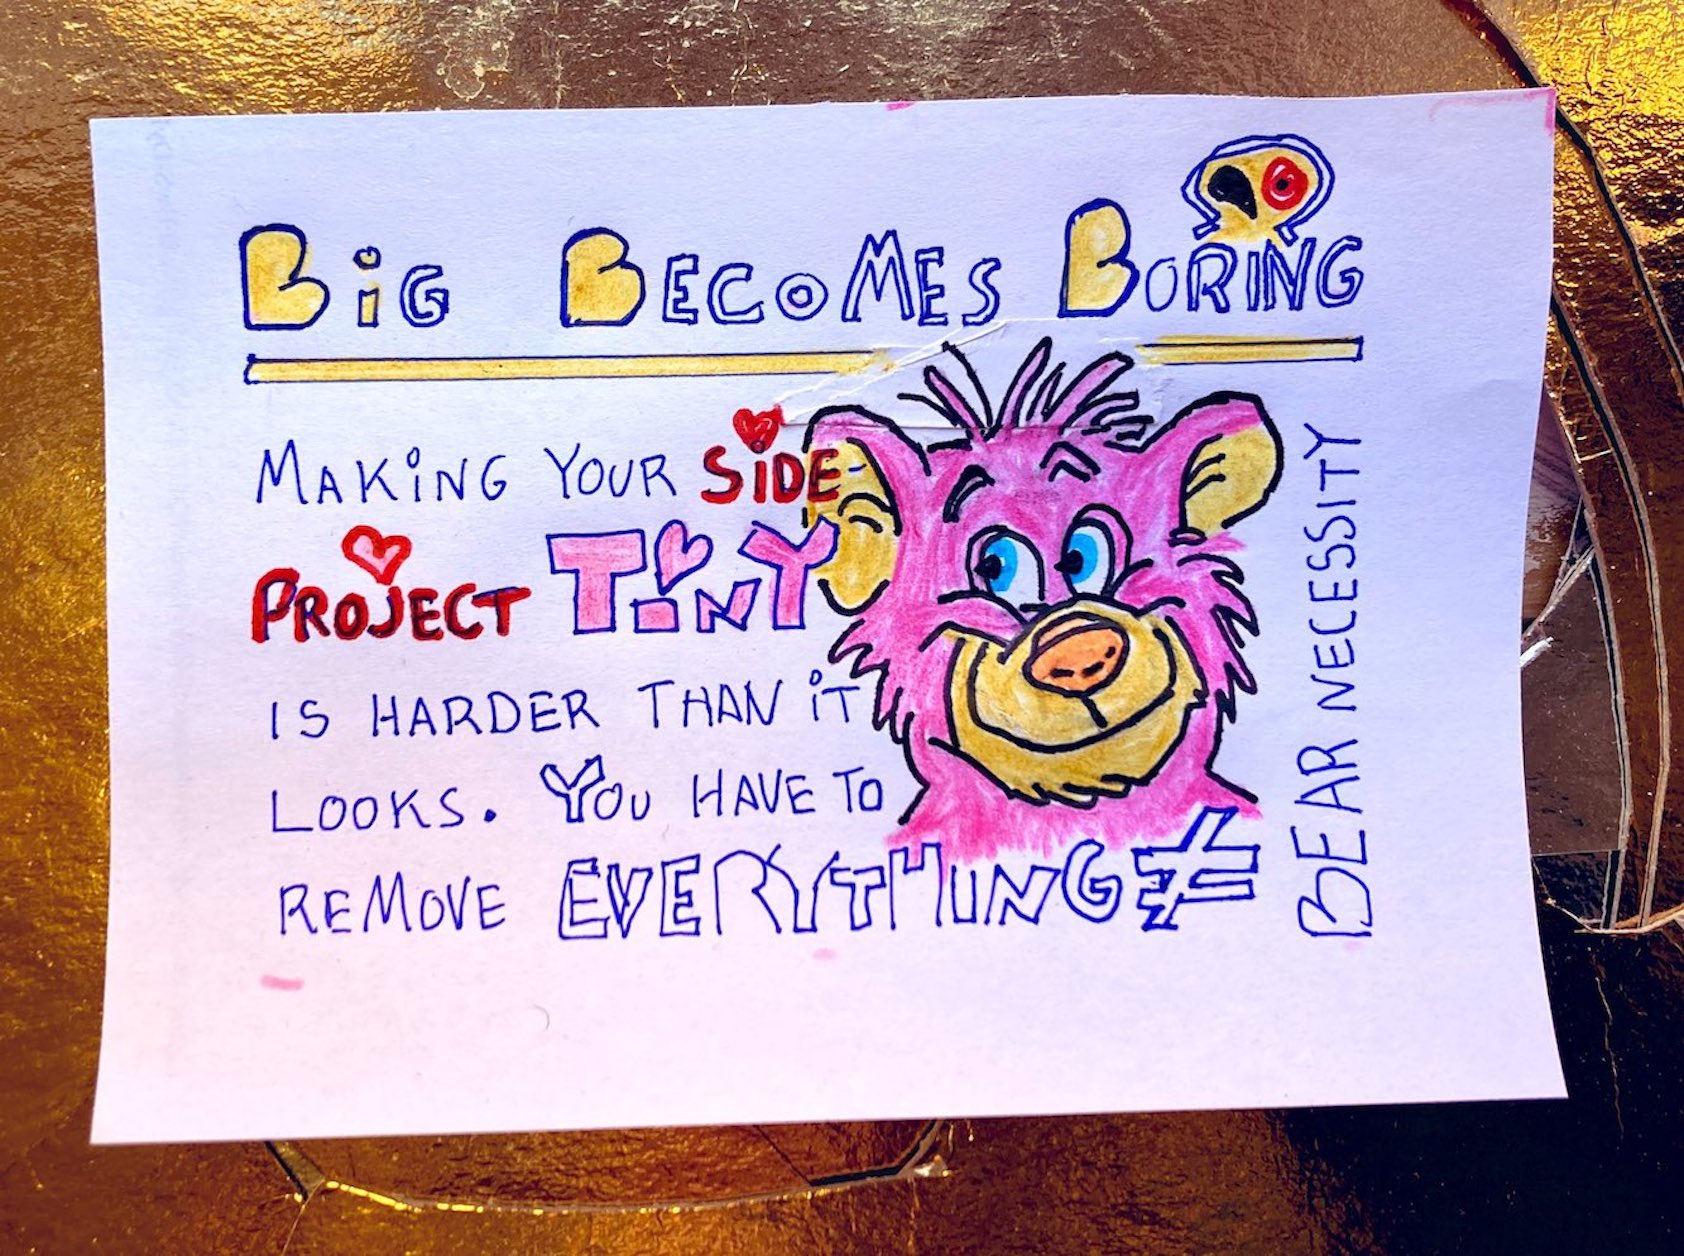 BiG BECOMES BORING
MAKiNG YOUR SiDE
PROJECT TiNY
IS HARDER THAN iT
LOOKS. YOU HAVE TO
REMOVE EVERYTHING≠
BEAR NECESSITY